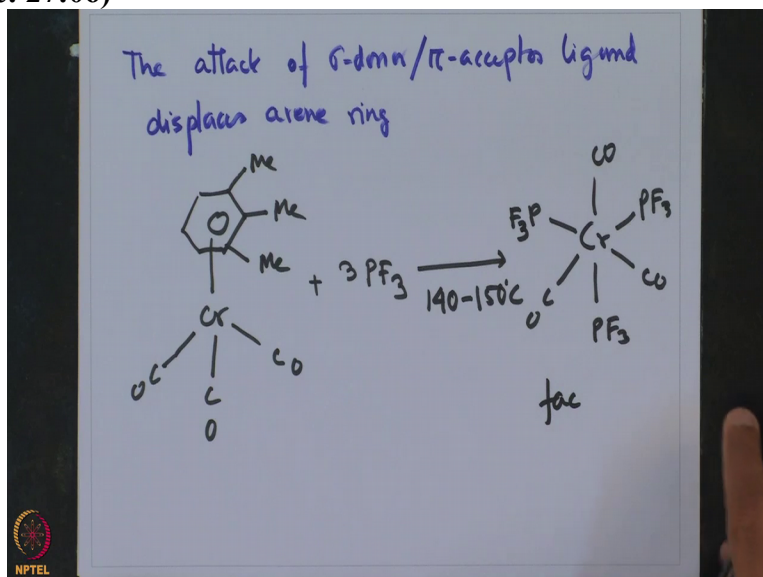 The attack of σ-donor/π-acceptor ligand
displaces arene ring
Me
Me
Me
Cr
OC
C
O
CO
+ 3 PF3
140-150°C
CO
F3P
PF3
Cr
OC
CO
PF3
fac
NPTEL